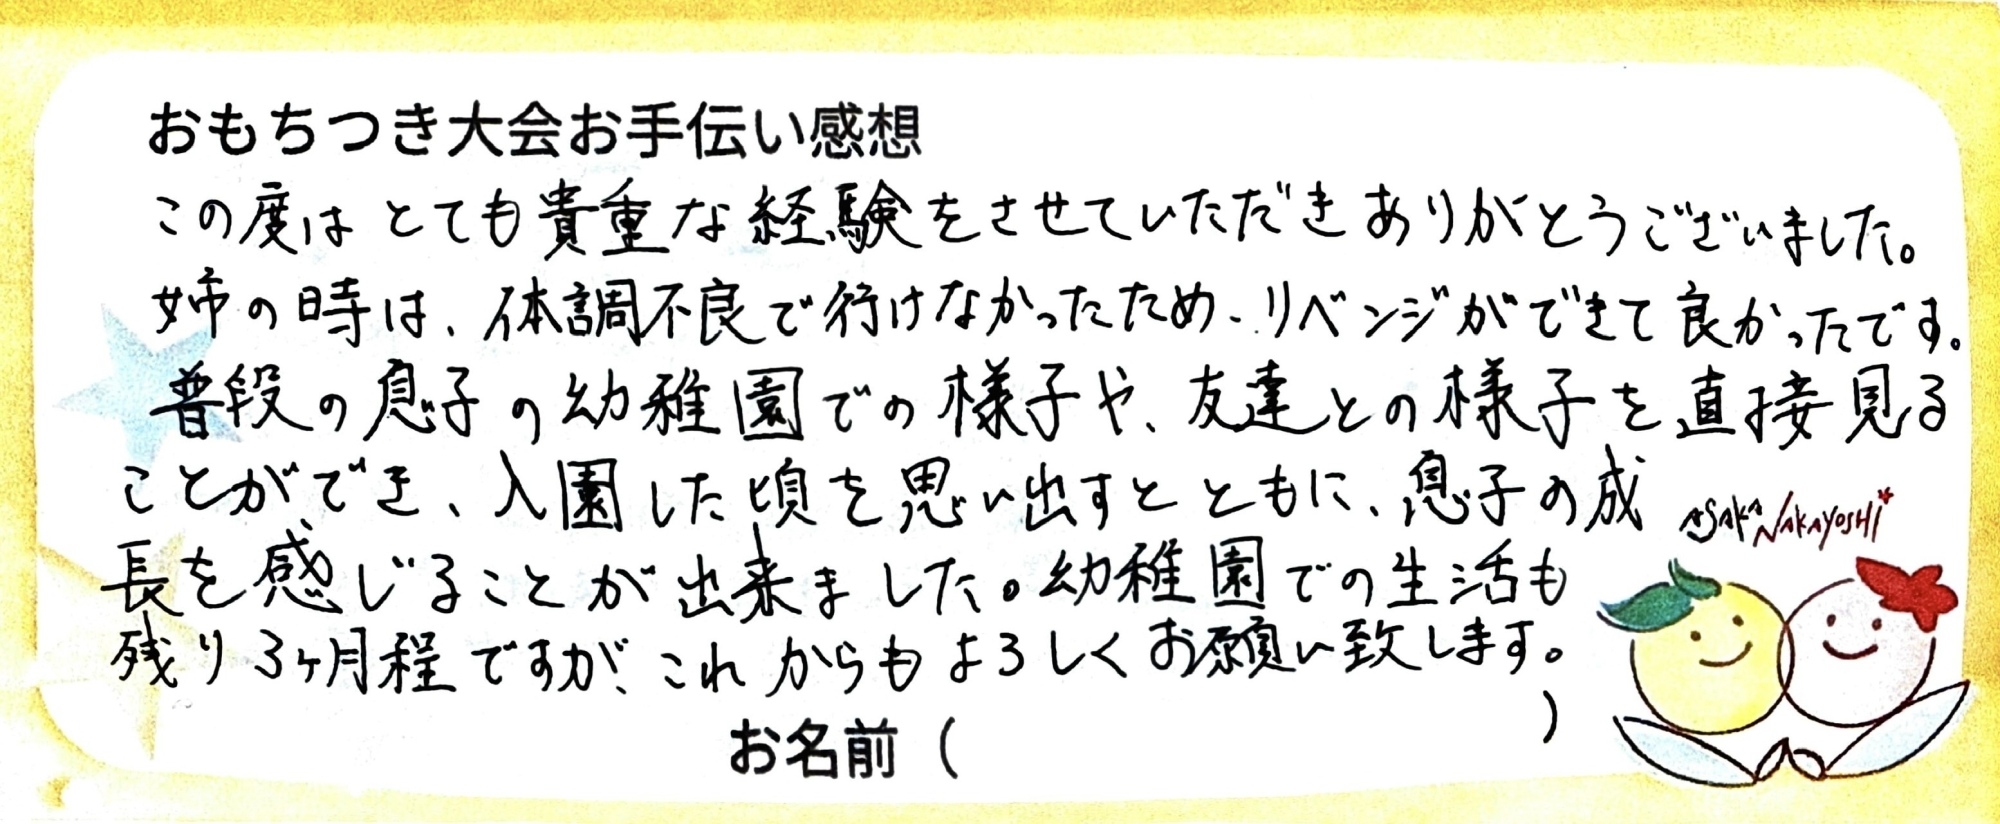 おもちつき大会お手伝い感想
この度はとても貴重な経験をさせていただきありがとうございました。
姉の時は、体調不良で行けなかったため、リベンジができて良かったです。
普段の息子の幼稚園での様子や、友達との様子を直接見る
ことができ、入園した頃を思い出すとともに、息子の成
長を感じることが出来ました。幼稚園での生活も
残り3ヶ月程ですが、これからもよろしくお願い致します。
ASAKA NAKAYOSHI
お名前（　）